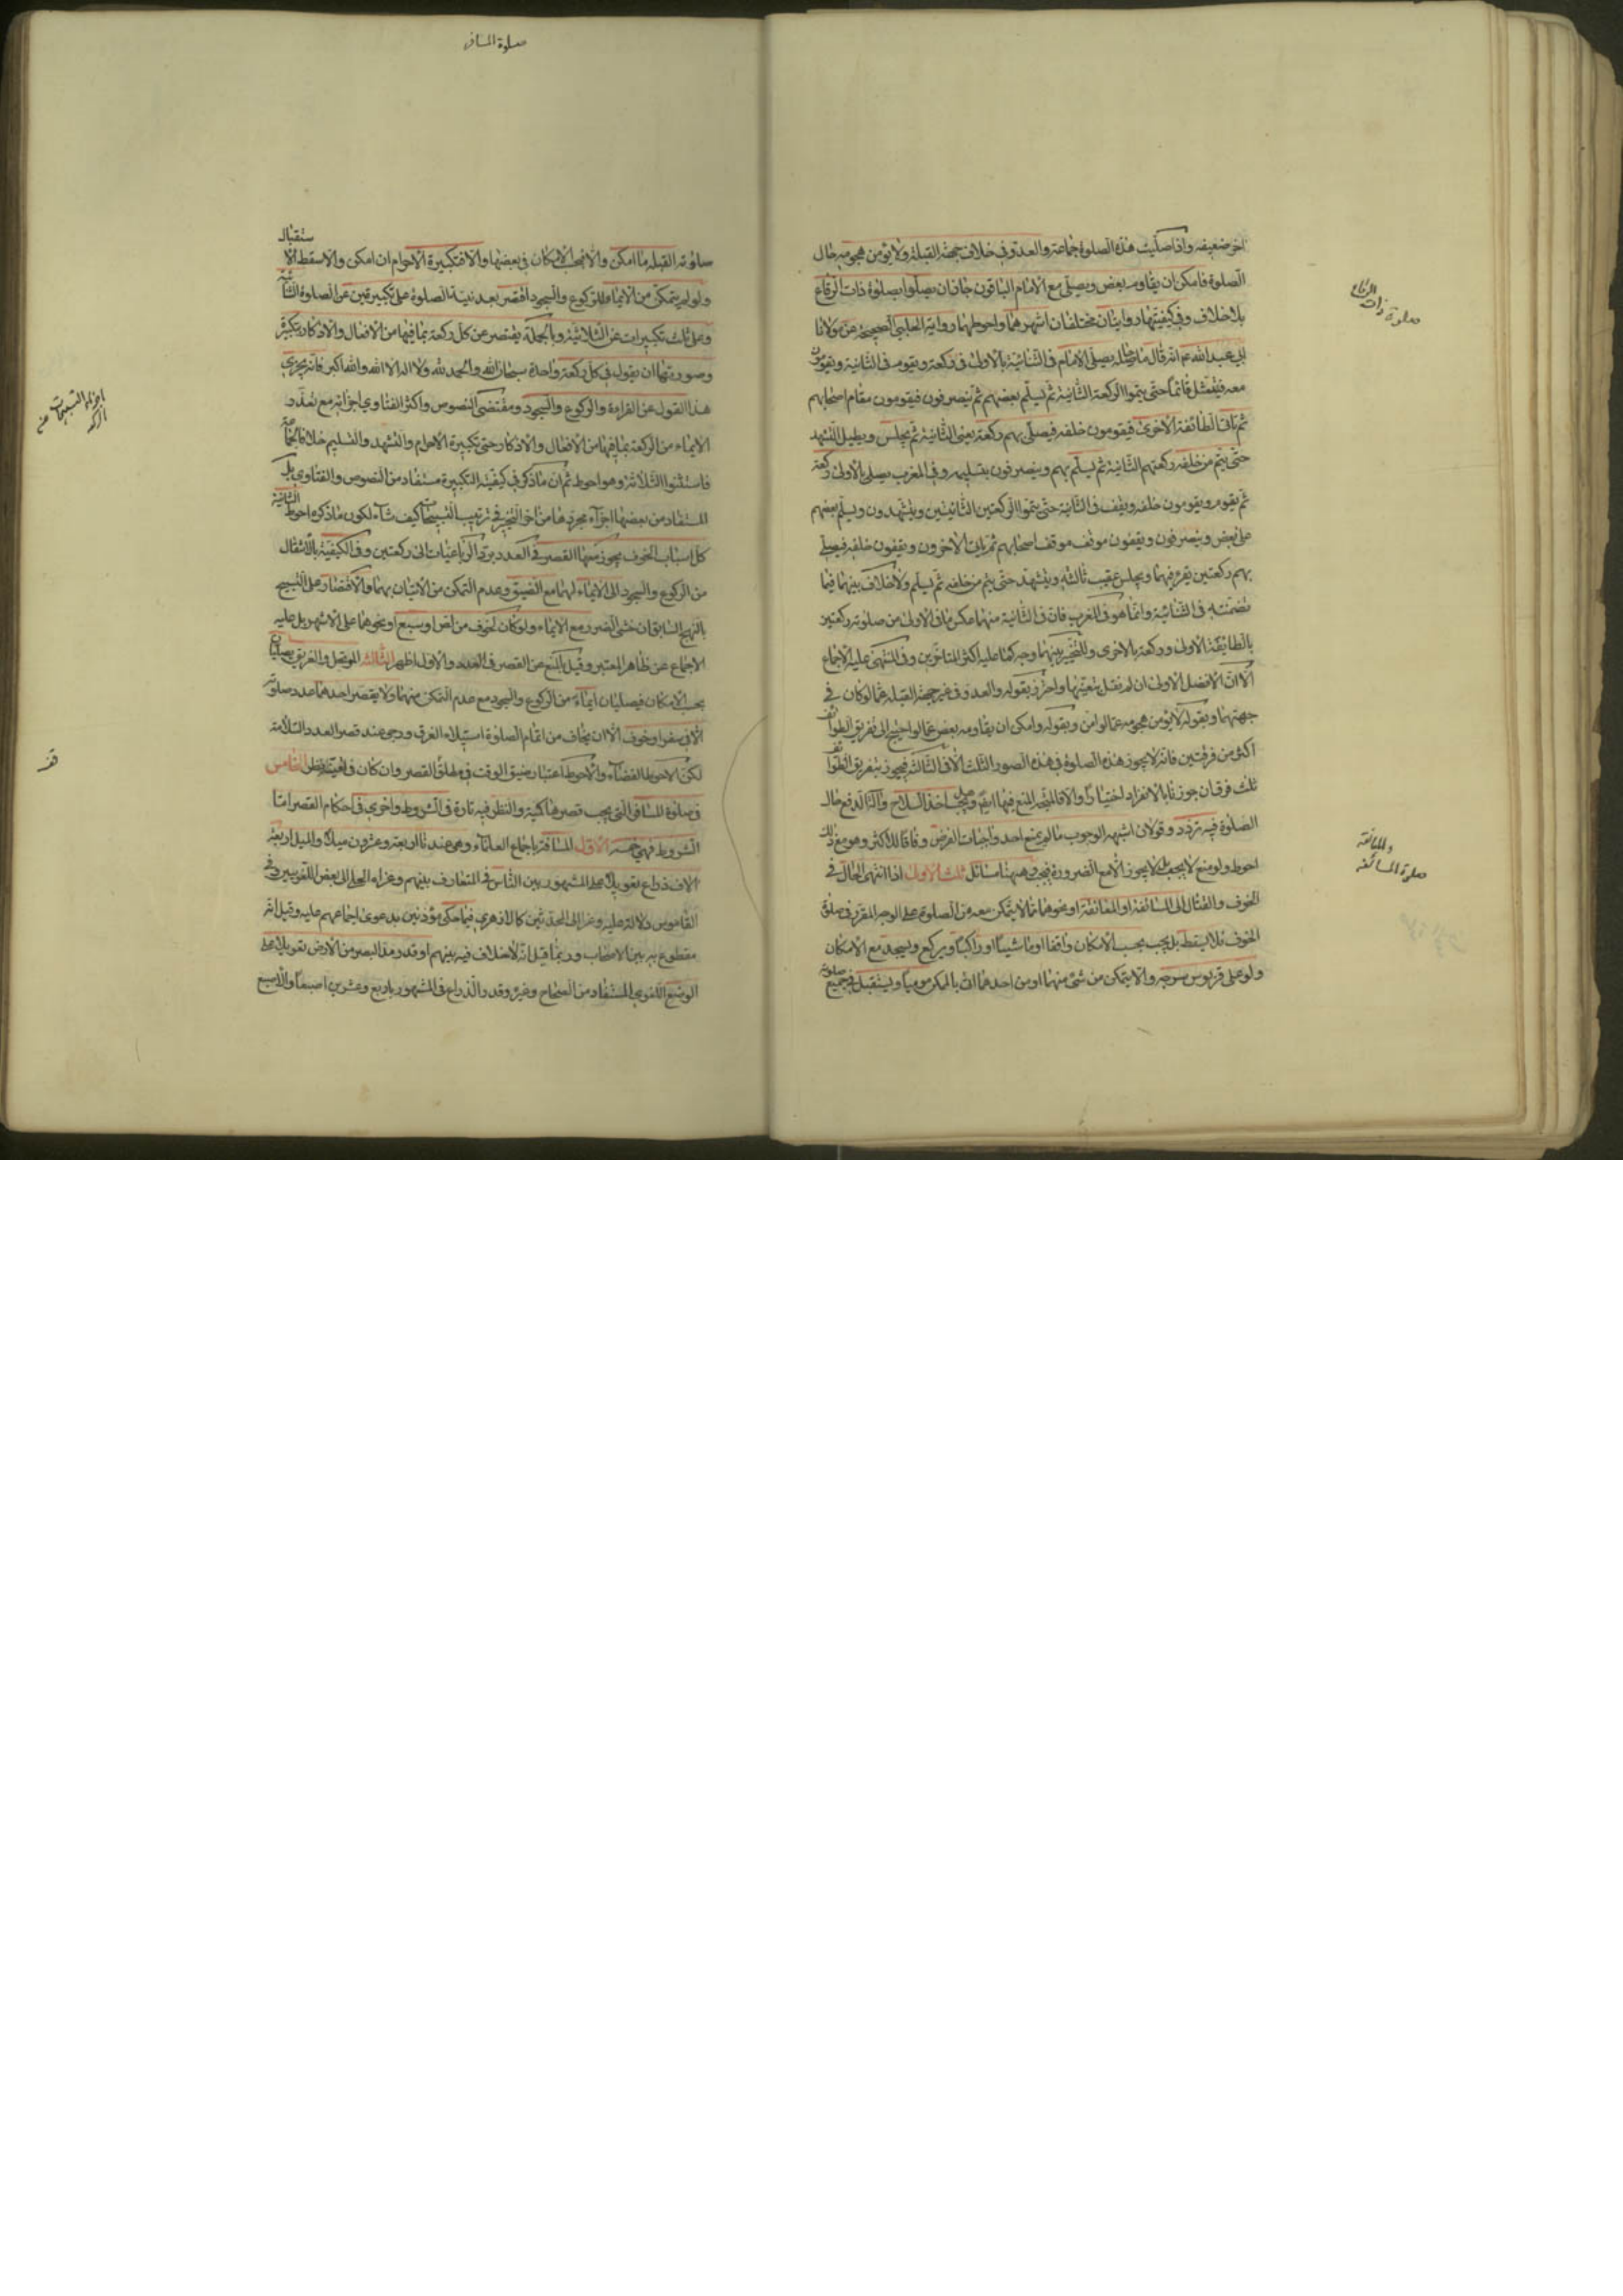 اخر ضعيفه واذا صليت هذه الصلوة جماعة والعدو في خلاف جهة القبلة ولا يؤمن هجومه حال
الصلوة فامكن ان يقاومه بعض ويصلي مع الامام الباقون جاز ان يصلوا بصلوة ذات الرقاع
بلا خلاف وفي كيفيتها روايتان مختلفتان اشهرهما واحوطهما رواية الحلبي الصحيحة عن مولانا
ابي عبد الله عم انه قال يصلي الامام في الثنائية بالاولى ركعة ويقوم في الثانية ويقومون
معه قائما حتى يتموا الركعة الثانية ثم يسلم بعضهم ثم ينصرفون فيقومون مقام اصحابهم
ثم تاتي الطائفة الاخرى فيقومون خلفه فيصلي بهم ركعة يعني الثانية ثم يجلس ويطيل التشهد
حتى يتم من خلفه ركعتهم الثانية ثم يسلم بهم وينصرفون بتسليمه وفي المغرب يصلي بالاولى ركعة
ثم يقوم ويقومون خلفه ويقف في الثانية حتى يتموا الركعتين الثانيتين ويتشهدون ويسلم بعضهم
على بعض وينصرفون ويقفون موقف اصحابهم ثم ياتي الاخرون ويقفون خلفه فيصلي
بهم ركعتين يقرء فيهما ويجلس عقيب ثالثته ويتشهد حتى يتم من خلفه ثم يسلم ولا خلاف بينهما فيما
تضمنته في الثنائية وانما هو في المغرب فان في الثانية منهما عكس ما في الاولى من صلوته ركعتين
بالطائفة الاولى وركعة بالاخرى والتخيير بينهما وجه كما عليه اكثر المتاخرين وفي المنتهى عليه الاجماع
الا ان الافضل الاولى ان لم نقل بتعينها واحترز بقوله والعدو في غير جهة القبلة عما لو كان في
جهتها وبقوله لا يؤمن هجومه عما لو امن وبقوله وامكن ان يقاومه بعض عما لو احتيج الى تفريق الطوائف
اكثر من فرقتين فانه لا يجوز هذه الصلوة في هذه الصور الثلث الا في الثالثة فيجوز بتفريق الطوائف
ثلث فرق ان جوزنا بالانفراد اختيارا والا فالمتجه المنع فيها ايضا وهل يجب اخذ السلاح والة الدفع حال
الصلوة فيه تردد وقولان اشبهه الوجوب ما لم يمنع احد واجبات الفرض وفاقا للاكثر وهو مع ذلك
احوط ولو منع لا يجب بل لا يجوز الا مع الضرورة فيجب وههنا مسائل ثلث الاولى اذا انتهى الحال في
الخوف والقتال الى المسائفة او المعانقة او نحوهما مما لا يتمكن معه من الصلوة على الوجه المقرر في صلوة
الخوف فلا يسقط بل يجب بحسب الامكان واقفا او ماشيا او راكبا ويركع ويسجد مع الامكان
ولو على قربوس سرجه والا يتمكن من شئ منهما او من احدهما اتى بالممكن موميا ويستقبل في جميع صلوته
صلوة ذات الرقاع
والمعانقة
صلوة المسائفة
صلوة المسافر
صلوته القبلة ما امكن والا فبحسب الامكان في بعضها والا فتكبيرة الاحرام ان امكن والا سقط الاستقبال
ولو لم يتمكن من الايماء للركوع والسجود اقتصر بعد نية الصلوة على تكبيرتين عن الصلوة الثنائية
وعلى ثلث تكبيرات عن الثلاثية وبالجملة يقتصر عن كل ركعة بما فيها من الافعال والاذكار بتكبيرة
وصورتها ان يقول في كل ركعة واحدة سبحان الله والحمد لله ولا اله الا الله والله اكبر فانه يجزي
هذا القول عن القراءة والركوع والسجود ومقتضى النصوص واكثر الفتاوي اجزائه مع تعذر
الايماء من الركعة بما فيها من الافعال والاذكار حتى تكبيرة الاحرام والتشهد والتسليم خلافا لجماعة
فاستثنوا الثلاثة وهو احوط ثم ان ما ذكر في كيفية التكبيرة مستفاد من النصوص والفتاوي بل
المستفاد من بعضها اجزاء مجردها من اخر التخيير في ترتيب التسبيحات كيف شاء لكن ما ذكره احوط الثانية
كل اسباب الخوف يجوز معها القصر في العدد برد الرباعيات الى ركعتين وفي الكيفية بالانتقال
من الركوع والسجود الى الايماء لهما مع الضيق وعدم التمكن من الاتيان بهما والاقتصار على التسبيح
بالنهج السابق ان خشي الضرر مع الايماء ولو كان الخوف من لص او سبع او نحوهما على الاشهر بل عليه
الاجماع عن ظاهر المعتبر وقيل بالمنع عن القصر في العدد والاول اظهر الثالثة الموتحل والغريق يصليان
بحسب الامكان فيصليان ايماء من الركوع والسجود مع عدم التمكن منهما ولا يقصر احدهما عدد صلوته
الا في سفر او خوف الا ان يخاف من اتمام الصلوة استيلاء الغرق ورجى عند قصر العدد السلامة
لكن الاحوط القضاء والاحوط اعتبار ضيق الوقت في مطلق القصر وان كان في تعينه نظر الخامس
في صلوة المسافر التي يجب قصرها كمية والنظر فيه تارة في الشروط واخرى في احكام القصر اما
الشروط فهي خمسة الاول المسافة باجماع العلماء وهي عندنا اربعة وعشرون ميلا والميل اربعة
الاف ذراع تعويلا على المشهور بين الناس في المتعارف بينهم وعزاه الحلي الى بعض اللغويين وفي
القاموس دلالة عليه وعزا الى المحدثين كالازهري فيما حكى مؤذنين بدعوى اجماعهم عليه وقيل انه
مقطوع به بين الاصحاب وربما قيل انه لا خلاف فيه بينهم او قدر مد البصر من الارض تعويلا على
الوضع اللغوي المستفاد من الصحاح وغيره وقدر الذراع في المشهور باربع وعشرين اصبعا والاصبع
اجزاء التسبيحات عن